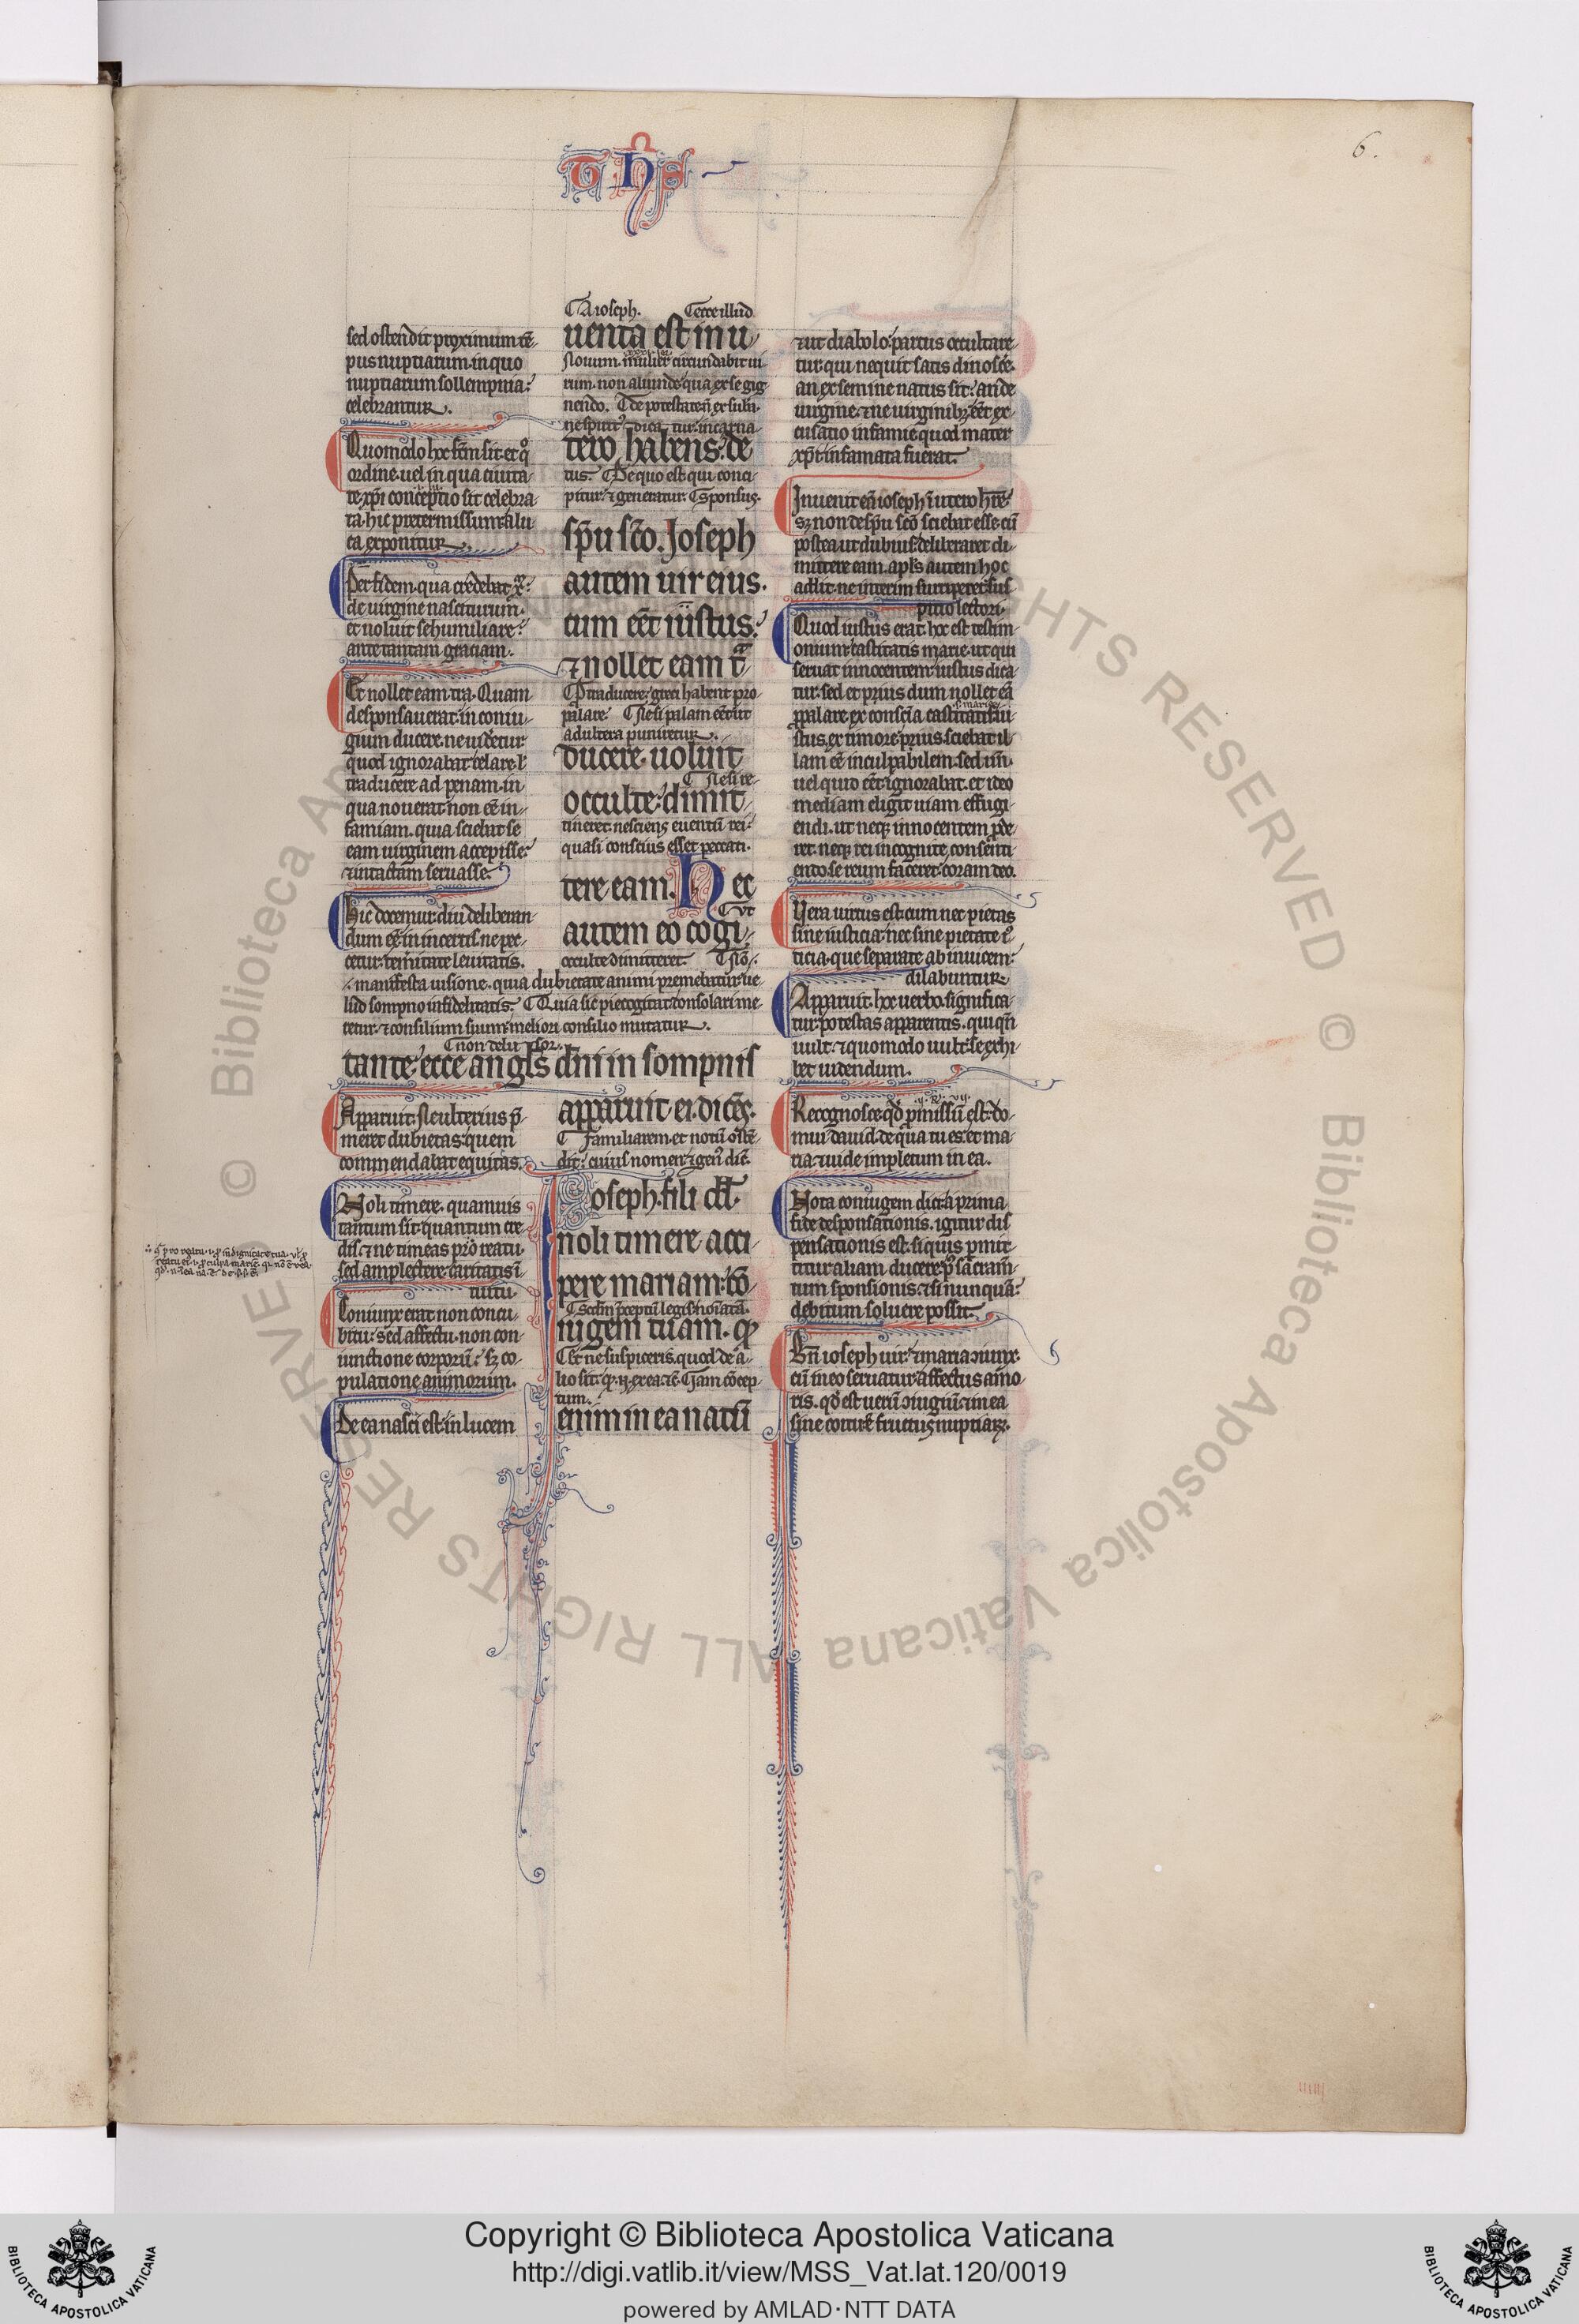 T h S
6.
sed ostendit proximum tē-
pus nuptiarum. in quo
nuptiarum sollempnia
celebrantur.
Quomodo hoc fc̄m sit et qͦ
ordine. uel in qua ciuita-
te xp̄i conceptio sit celebra
ta. hic pretermissum a lu
ca exponitur.
Per fidem. qua credebat
de uirgine nasciturum.
et noluit se humiliare
ante tantam gratiam.
Et nollet eam tra. Quam
desponsauerat in coniu-
gium ducere. ne uideretur
quod ignorabat celare. l'
traducere ad penam. in
qua nouerat non eē in-
famiam. quia sciebat se
eam uirginem accepisse
⁊ intactam seruasse.
Hic docemur. diu deliberan-
dum eē in incertis. ne pec-
cetur. temitate leuitatis.
Apparuit. ne ulterius p̄-
meret dubietas quem
commendabat equitas.
Noli timere. quamuis
tantum sit quantum cre
dis. ⁊ ne timeas pro reatu
sed amplectere caritatis ī
tuitu
Coniunx erat non concu-
bitu. sed affectu. non con-
iunctione corporū. sꝫ co-
pulatione animorum.
De ea nasci est in lucem
A ioseph. ecce illud
uenta est in u
Nouum. mulier circundabit ui
rum. non aliunde. qua ex se gig-
nendo. De potestate nō ex suba-
ne spirit'. dica tur. incarna-
tero habens. de
tus. De quo est qui conci-
pitur. ⁊ generatur. Sponsus.
sp̄u sc̄o. Joseph
autem uir eius.
cum eēt iustus.
⁊ nollet eam t̄
traducere. greci habent pro-
palare. Ne si palam eēt ut
adultera puniretur.
ducere. uoluit
Ne si re-
occulte. dimit-
tineret. nesciens euentū rei
quasi conscius esset peccati.
tere eam. Hec
Ut
autem eo cogi-
occulte dimitteret.
manifesta uisione. quia dubietate animi premebatur. ue
lud sompno infidelitatis. Quia sic pie cogitat. consolari me
retur. ⁊ consilium suum meliori consilio mutatur.
tante. ecce angls dn̄i in sompnis
apparuit ei. dicēs.
Familiarem. et notū ostē-
dit. cuius nomen. ⁊ gen' dic̄.
Ioseph. fili dd̄.
noli timere acci-
pere mariam. cō-
Scdm̄ preceptū legis. noīatā.
iugem tuam. qd̄
Et ne suspiceris. quod de a-
lio sit.
tum.
enim in ea natū
⁊ ut diabolo. partus occultare
tur. qui nequit satis dinosce.
an ex semine natus sit. an de
uirgine. ⁊ ne uirginibꝫ eēt ex
cusatio infamie quod mater
xp̄i infamata fuerat.
Inuenit eā ioseph ī utero hn̄te
sꝫ non de sp̄u sc̄o sciebat esse. cū
postea ut dubius deliberaret di-
mittere eam. apl̄s autem hoc
addit. ne interim surriperet sus
pitio lectori.
Quod iustus erat. hoc est testim-
onium castitatis marie. ut qui
seruat innocentem. iustus dica
tur. sed et prius dum nollet eā
ppalare ex consciā castitatis iu-
stus. ex timore prius. sciebat il-
lam eē inculpabilem. sed un̄.
uel quid eēt ignorabat. et ideo
mediam eligit uiam effugi-
endi. ut neqꝫ innocentem pde-
ret. neqꝫ rei incognite consenti
endo. se reum faceret coram deo.
Vera uirtus est. cum nec pietas
sine iusticia. nec sine pietate iu
ticia. que separate ab inuicem
dilabuntur.
Apparuit. hoc uerbo significa
tur. potestas apparentis. qui qn̄
uult. ⁊ quomodo uult. se exhi
bet uidendum.
Recognosce. qd̄ pmissū est. do-
mui dauid. de qua tu es. et ma-
ria. ⁊ uide impletum in ea.
Nota coniugem dicta prima
fide desponsationis. igitur dis
pensationis est. si quis pmit-
titur aliam ducere. p' sacram̄-
tum sponsionis. ⁊ si nunquā
debitum soluere possit.
Bn̄ ioseph uir. ⁊ maria ɔiunx.
cū in eo seruatur affectus amo
ris. qd̄ est uerū ɔiugiū. ⁊ in ea
sine coitu ē fructus nuptiarꝫ.
© Biblioteca Apostolica Vaticana ALL RIGHTS RESERVED
Copyright © Biblioteca Apostolica Vaticana
http://digi.vatlib.it/view/MSS_Vat.lat.120/0019
powered by AMLAD·NTT DATA
BIBLIOTECA APOSTOLICA VATICANA
BIBLIOTECA APOSTOLICA VATICANA